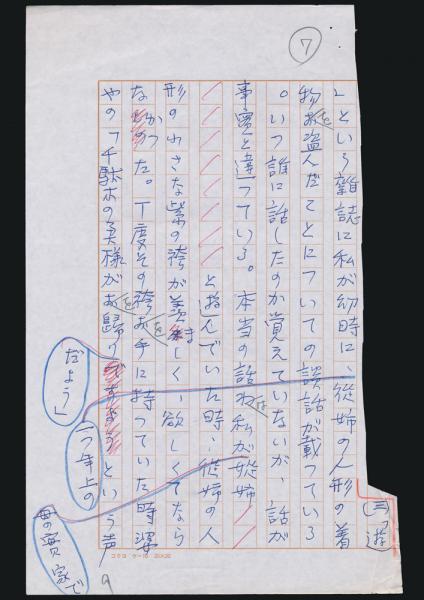 7
」という雑誌に私が幼時に、従姉の人形の着
物を盗んだことについての談話が載っている
。いつ誰に話したのか覚えていないが、話が
事実と違っている。本当の話は私が従姉
と遊んでいた時、従姉の人
形の小さな紫の袴が羨ましく、欲しくてなら
なかつた。丁度その袴を手に持っていた時婆
やの「千駄木の奥様がお帰り
という声
だよう」
一つ年上の
母の實家で
(三つ遊
コクヨ ケ-10 20×20
9